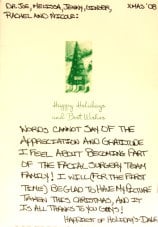 DR. JOE, MELISSA, JENNY, GINGER, XMAS '08
RACHEL AND NICOLE:
Happy Holidays
and Best Wishes
WORDS CANNOT SAY OF THE
APPRECIATION AND GRATITUDE
I FEEL ABOUT BECOMING PART
OF THE FACIAL SURGERY TEAM
FAMILY! I WILL (FOR THE FIRST
TIME) BE GLAD TO HAVE MY PICTURE
TAKEN THIS CHRISTMAS, AND IT
IS ALL THANKS TO YOU GUYS!
HAPPIEST OF HOLIDAYS, DALE